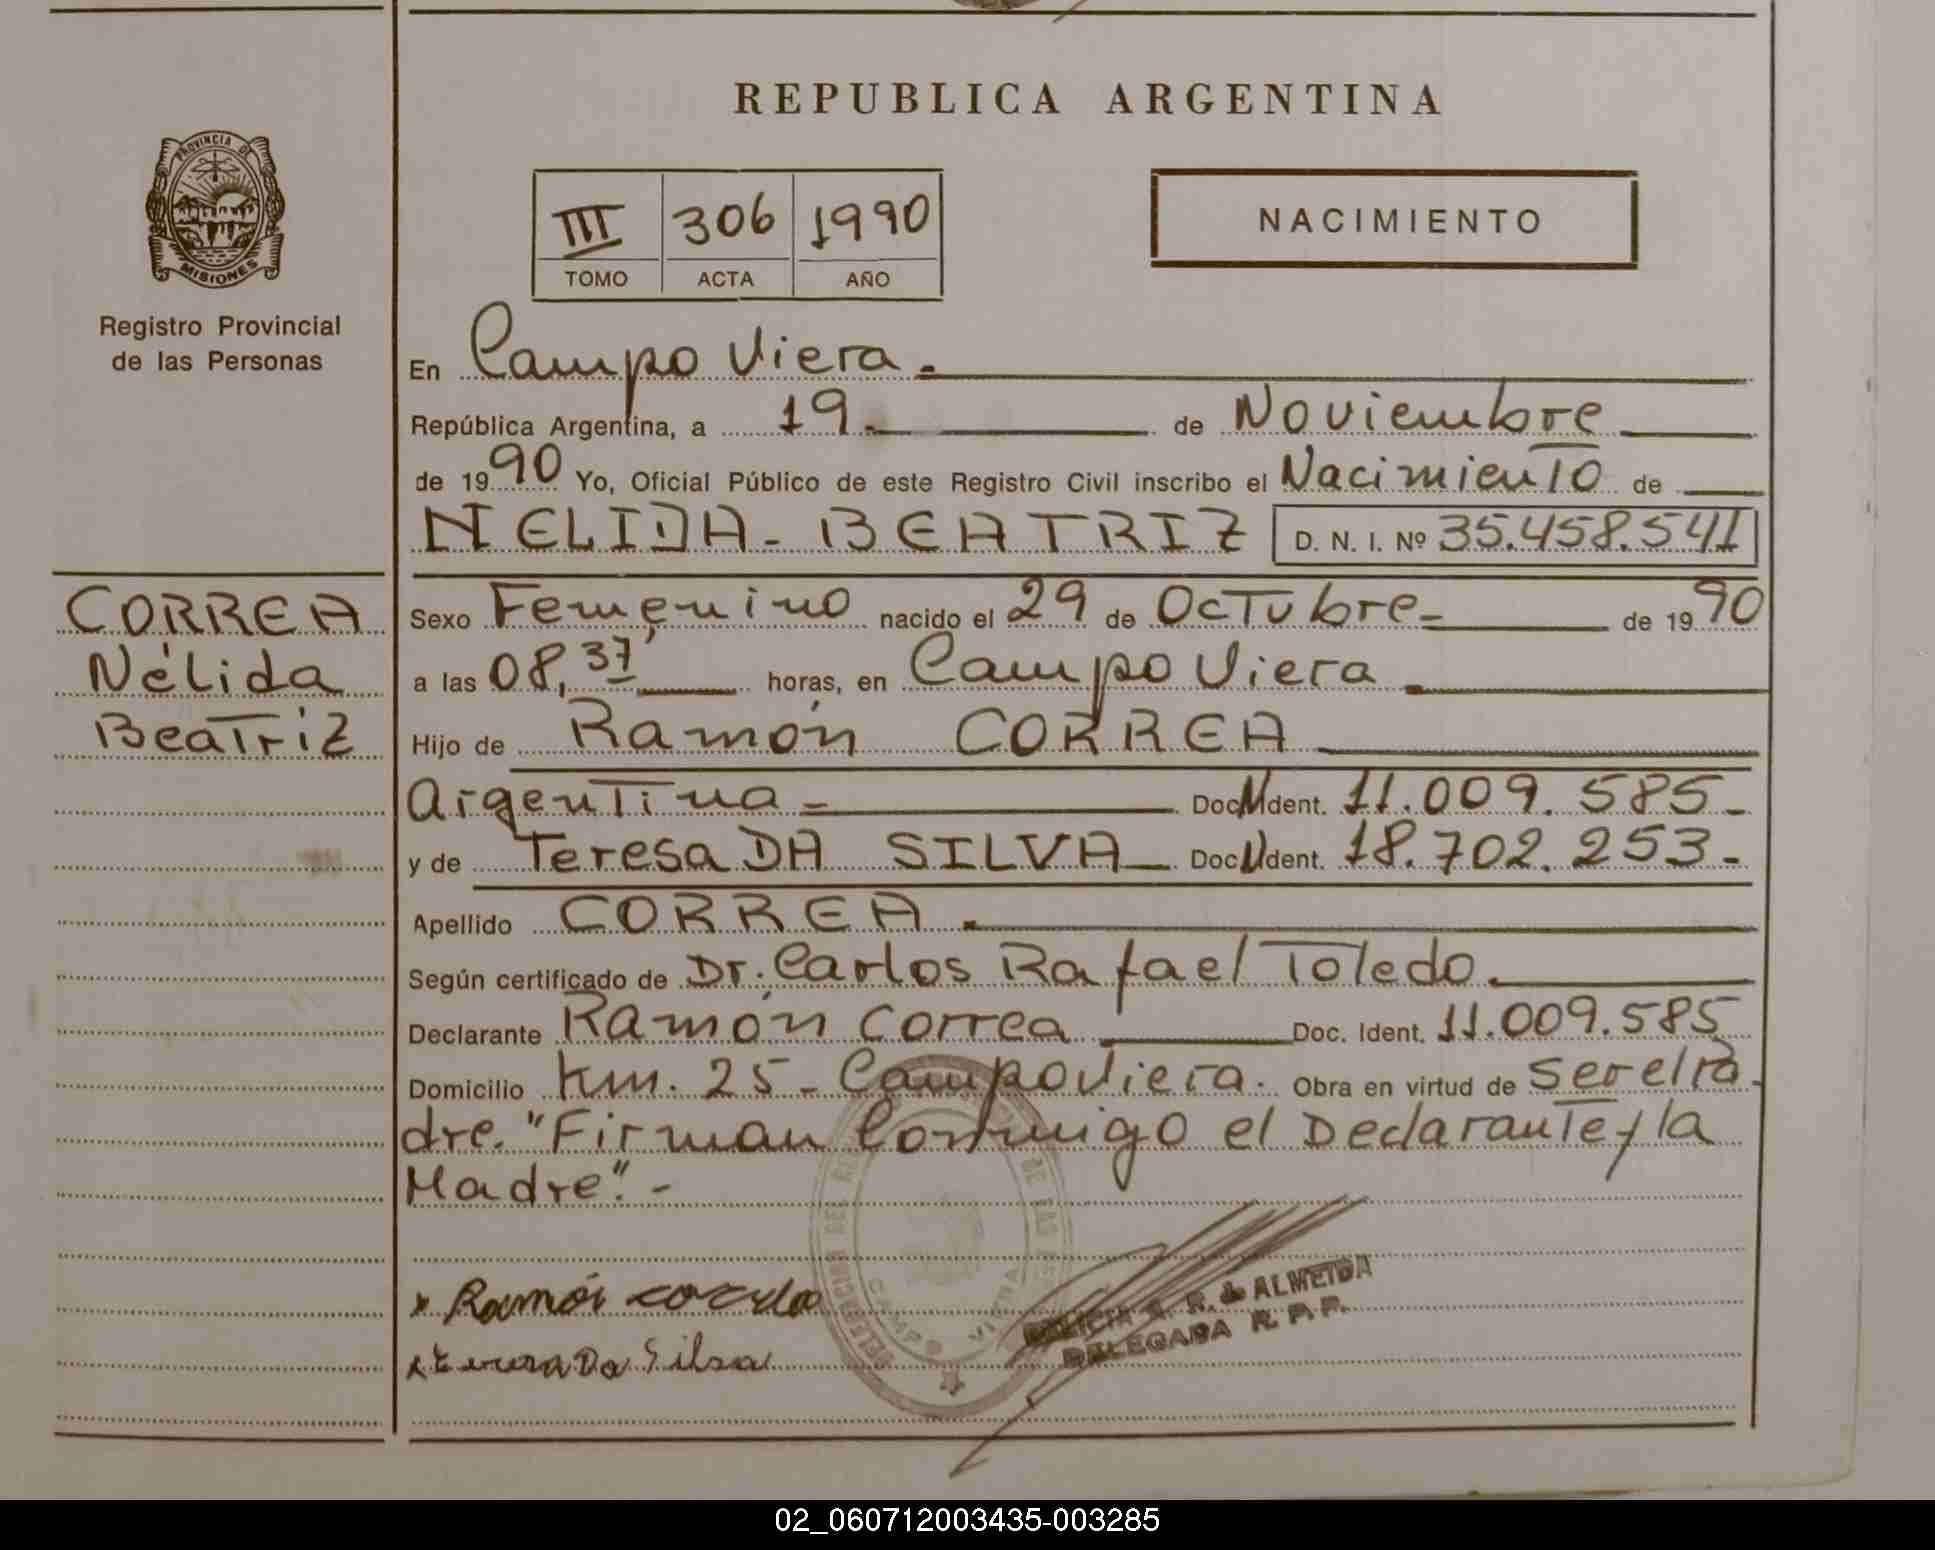 REPUBLICA ARGENTINA
PROVINCIA DE
MISIONES
Registro Provincial
de las Personas
III 306 1990
TOMO ACTA AÑO
NACIMIENTO
En Campo Viera.
República Argentina, a 19. de Noviembre
de 1990 Yo, Oficial Público de este Registro Civil inscribo el Nacimiento de
NELIDA-BEATRIZ D. N. I. Nº 35.458.541
CORREA
Nélida
Beatriz
Sexo Femenino nacido el 29 de Octubre- de 1990
a las 08,37' horas, en Campo Viera.
Hijo de Ramón CORREA
Argentina- Doc. Ident. 11.009.585-
y de Teresa DA SILVA Doc. Ident. 18.702.253-
Apellido CORREA.
Según certificado de Dr. Carlos Rafael Toledo.
Declarante Ramón Correa Doc. Ident. 11.009.585
Domicilio Km. 25- Campo Viera. Obra en virtud de ser el Pa
dre. "Firman Conmigo el Declarante y la
Madre".-
Ramón
Da Silva
CAMPO VIERA
R. de ALMEIDA
DELEGADA R. P. P.
02_060712003435-003285